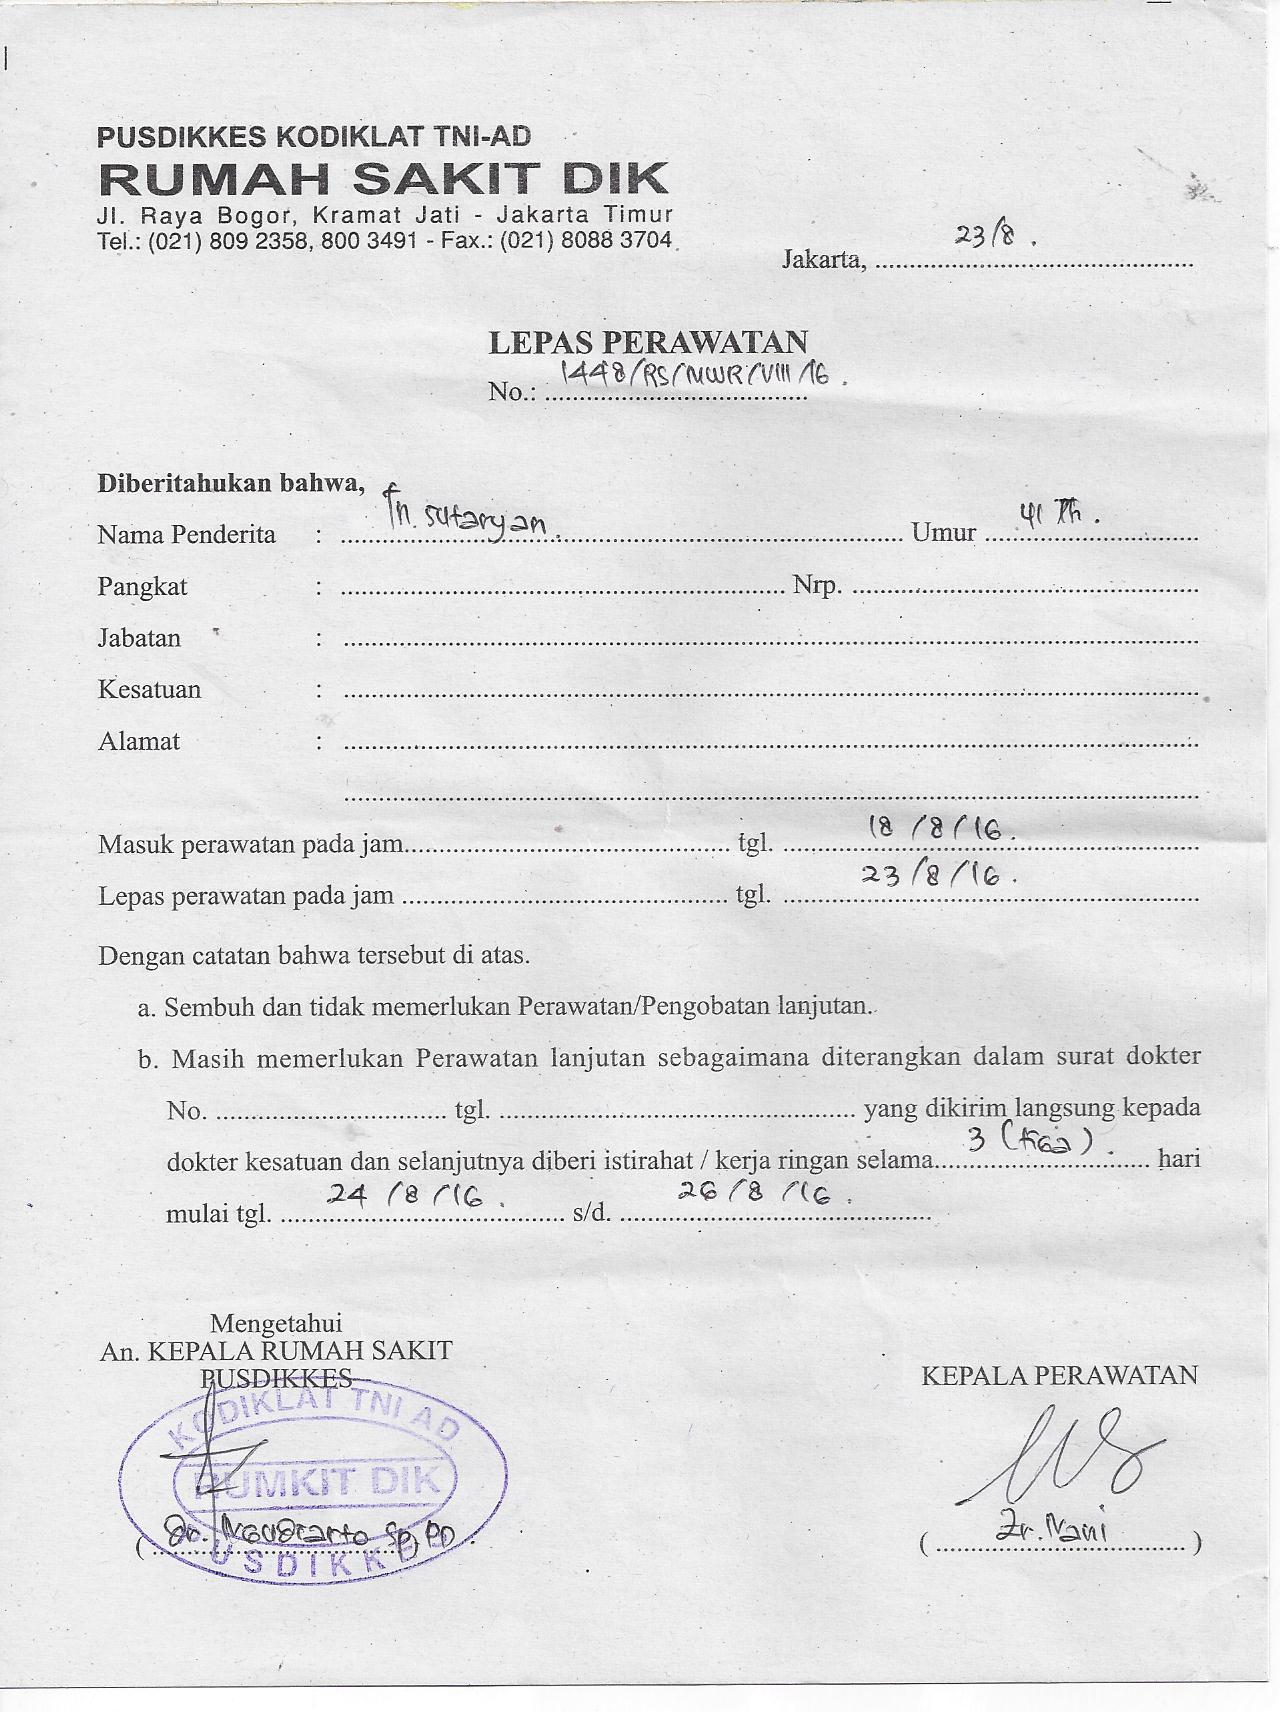 PUSDIKKES KODIKLAT TNI-AD
RUMAH SAKIT DIK
Jl. Raya Bogor, Kramat Jati - Jakarta Timur
Tel.: (021) 809 2358, 800 3491 - Fax.: (021) 8088 3704
Jakarta, 23/8.
LEPAS PERAWATAN
No.: 1448/RS/MWR/VIII/16.
Diberitahukan bahwa,
Nama Penderita : Tn. Sutaryan. Umur 41 Th.
Pangkat : Nrp.
Jabatan :
Kesatuan :
Alamat :
Masuk perawatan pada jam tgl. 18/8/16.
Lepas perawatan pada jam tgl. 23/8/16.
Dengan catatan bahwa tersebut di atas.
a. Sembuh dan tidak memerlukan Perawatan/Pengobatan lanjutan.
b. Masih memerlukan Perawatan lanjutan sebagaimana diterangkan dalam surat dokter
No. tgl. yang dikirim langsung kepada
dokter kesatuan dan selanjutnya diberi istirahat / kerja ringan selama 3 (tiga). hari
mulai tgl. 24/8/16. s/d. 26/8/16.
Mengetahui
An. KEPALA RUMAH SAKIT
PUSDIKKES
KEPALA PERAWATAN
KODIKLAT TNI AD
RUMKIT DIK
PUSDIKKES
(Dr. Sp.PD.)
(Zr. Nani)